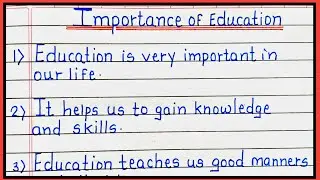 Importance of Education
1) Education is very important in
our life.
2) It helps us to gain knowledge
and skills.
3) Education teaches us good manners